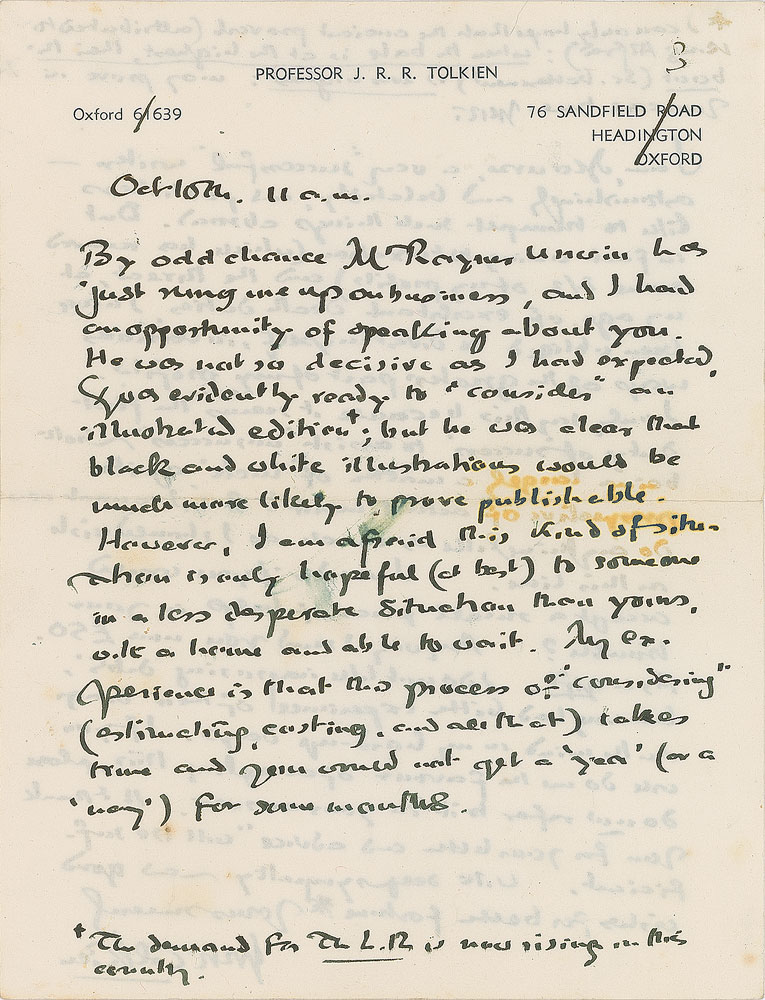 3
PROFESSOR J. R. R. TOLKIEN
Oxford 61639
76 SANDFIELD ROAD
HEADINGTON
OXFORD
Oct 10th. 11 a.m.
By odd chance Mr Rayner Unwin has
just rung me up on business, and I had
an opportunity of speaking about you.
He was not so decisive as I had expected,
& was evidently ready to "consider" an
illustrated edition†; but he was clear that
black and white illustrations would be
much more likely to prove publishable.
However, I am afraid this kind of situ-
ation is only hopeful (at best) to someone
in a less desperate situation than yours,
with a home and able to wait. My ex-
perience is that this process of "considering"
(estimating, costing, and all that) takes
time and you would not get a 'yea' (or a
'nay') for some months.
† The demand for The L.R is now rising in this
country.